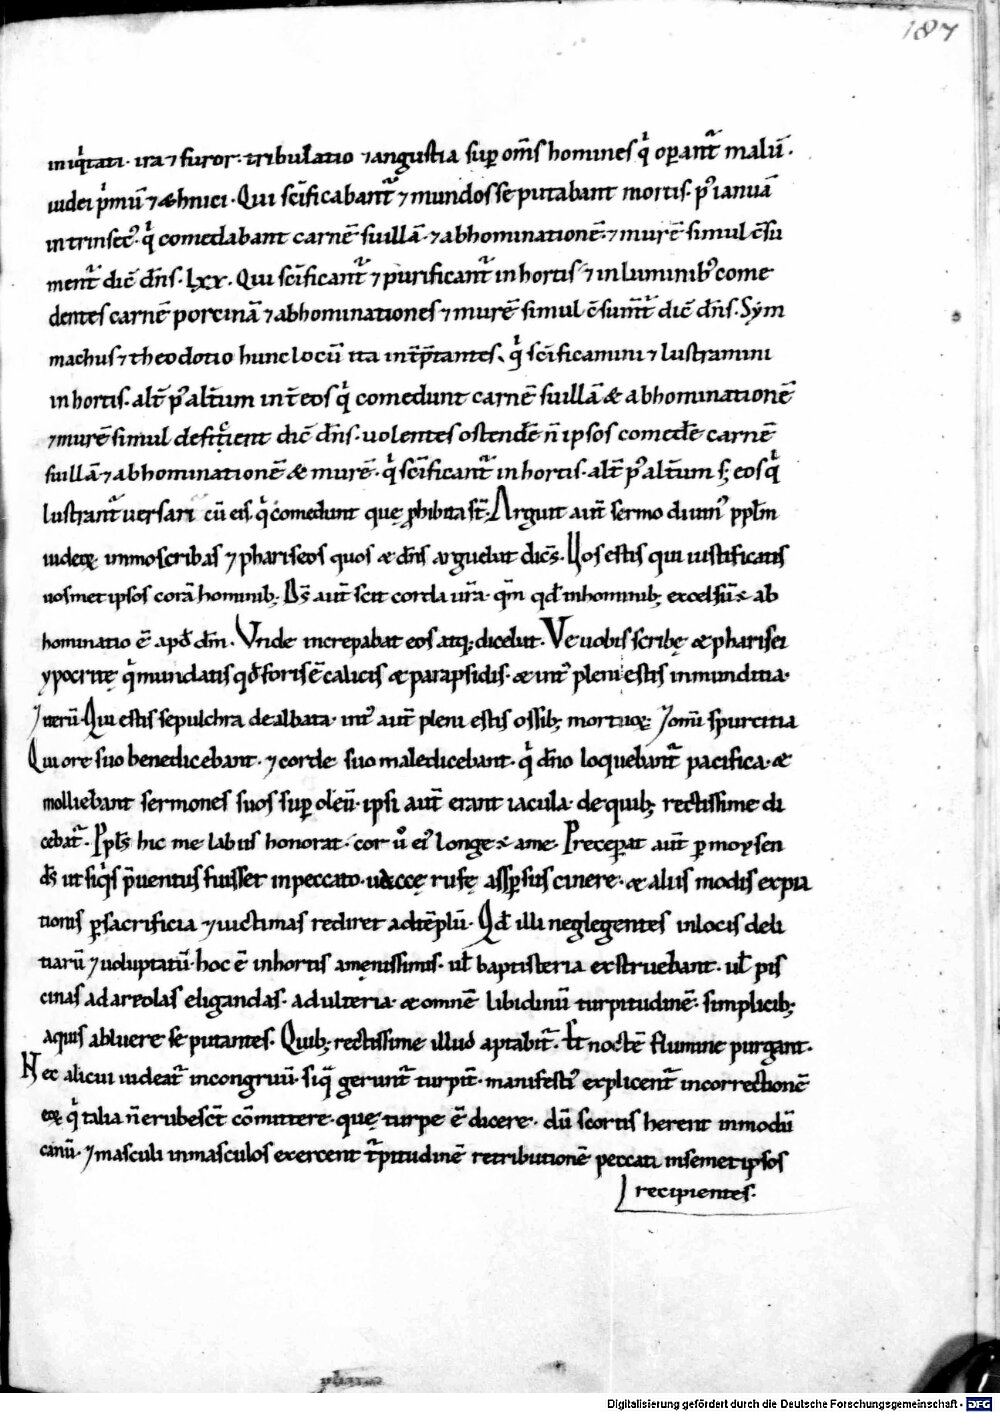 187
iniq̍tati. ira ⁊ furor. tribulatio ⁊ angustia sup̱ om̅s homines q̍ op̱ant᷑ malu̅.
iudei p̍mu̅ ⁊ &hnici. Qui sc̅ificabant᷑ ⁊ mundos se putabant mortis. p᷒ ianua̅
intrinsec᷒. q̍ comedabant carne̅ suilla̅. ⁊ abhominatione̅. ⁊ mure̅ simul c̅su
ment᷑ dic̅ dn̅s. lxx. Qui sc̅ificant᷑ ⁊ purificant᷑ in hortis ⁊ in luminib᷒ come
dentes carne̅ porcina̅ ⁊ abhominationes ⁊ mure̅ simul c̅sum̅t᷑ dic̅ dn̅s. Sym
machus ⁊ theodotio hunc locu̅ ita int̅p̅tantes. q̍ sc̅ificamini ⁊ lustramini
in hortis. alt̅ p᷒ alt̅um int̅ eos q̍ comedunt carne̅ suilla̅ & abhominatione̅
⁊ mure̅ simul deficient dic̅ dn̅s. uolentes ostende̅ n̅ ipsos comede̅ carne̅
suilla̅ ⁊ abhominatione̅ & mure̅. q̍ sc̅ificant᷑ in hortis. alt̅ p᷒ alt̅um s; eos q̍
lustrant᷑ uersari cu̅ eis q̍ comedunt quę ꝓhibita st̅. Arguit aut̅ sermo diuin᷒ ppl̅m
iudeoꝝ immo scribas ⁊ phariseos quos & dn̅s arguebat dice̅s. Uos estis qui iustificatis
uosmet ipsos cora̅ hominib;. Ds̅ aut̅ scit corda ur̅a. qm̅ qd̅ in hominib; excelsu̅ ÷ ab
hominatio e̅ apd̅ dm̅. Vnde increpabat eos atq; dicebat. Ve uobis scribę & pharisei
ypocritę q̍ mundatis qd̅ foris e̅ calicis & parapsidis. & int᷒ pleni estis inmunditia.
Iteru̅. Qui estis sepulchra dealbata. int᷒ aut̅ pleni estis ossib; mortuoꝝ. ⁊ omni spurcitia
Qui ore suo benedicebant. ⁊ corde suo maledicebant. q̍ dn̅o loquebant᷑ pacifica. &
molliebant sermones suos sup̱ oleu̅. ipsi aut̅ erant iacula. de quib; rectissime di
cebat᷑. Ppl̅s hic me labiis honorat. cor ů ei᷒ longe ÷ a me. Precep̱at aut̅ p̱ moysen
ds̅ ut siq̍s p̅uentus fuisset in peccato. uaccę rufę assp̱sus cinere. & aliis modis expia
tionis p̱ sacrificia ⁊ uictimas rediret ad te̅plu̅. Qd̅ illi neglegentes in locis deli
tiaru̅ ⁊ uoluptatu̅. hoc e̅ in hortis amęnissimis. ul̅ baptisteria exstruebant. ul̅ pis
cinas ad areolas eligandas. adulteria & omne̅ libidinu̅ turpitudine̅. simplicib;
aquis abluere se putantes. Quib; rectissime illud aptabit᷑. Et nocte̅ flumine purgant.
Nec alicui uideat᷑ incongruu̅. siq̅ gerunt᷑ turpit̅. manifesti᷒ explicent᷑ in correctione̅
eoꝝ q̍ talia n̅ erubesc̅t co̅mittere. quę turpe e̅ dicere. du̅ scortis herent in modu̅
canu̅. ⁊ masculi in masculos exercent t᷑pitudine̅ retributione̅ peccati in semet ipsos
recipientes.
Digitalisierung gefördert durch die Deutsche Forschungsgemeinschaft - DFG